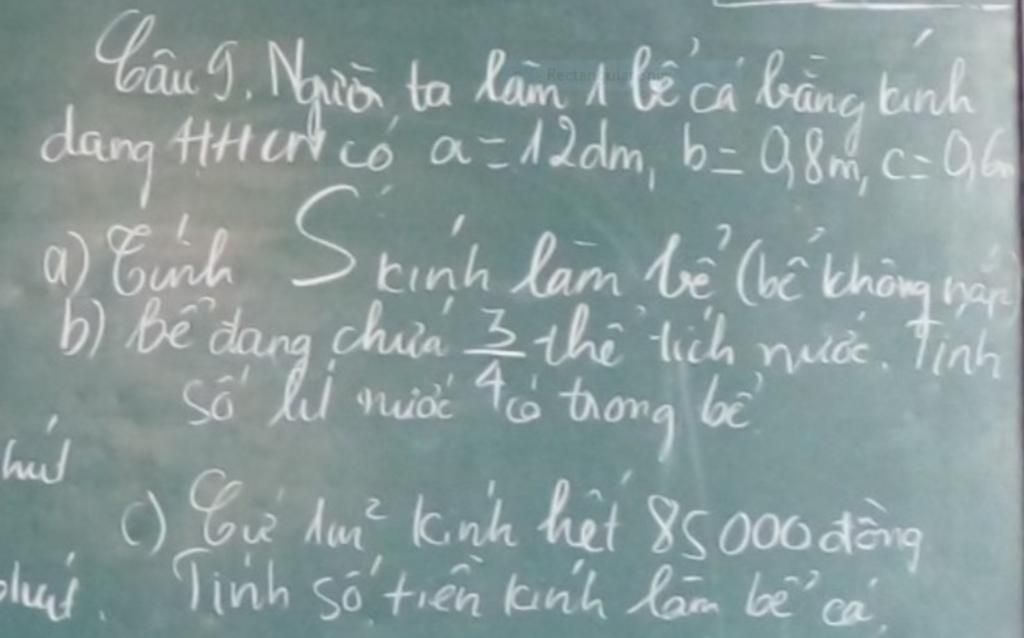 Câu 9. Người ta làm 1 bể cá bằng kính
dạng HHCN có a = 12dm, b = 0,8m, c = 0,6m
a) Tính S kính làm bể (bể không nắp)
b) Bể đang chứa 3/4 thể tích nước. Tính
số lít nước có trong bể
c) Cứ 1m² kính hết 85000 đồng
Tính số tiền kính làm bể cá.